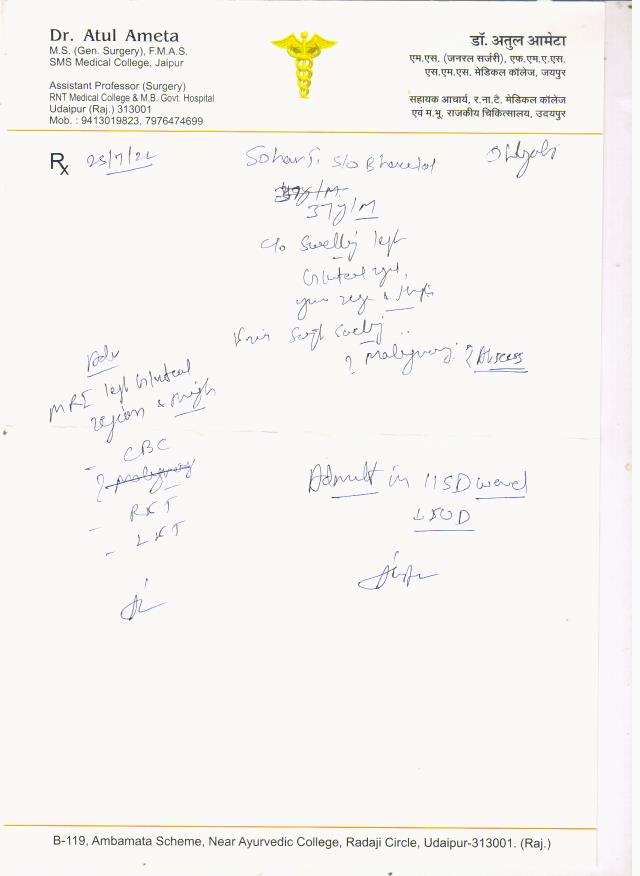 Dr. Atul Ameta
M.S. (Gen. Surgery), F.M.A.S.
SMS Medical College, Jaipur
Assistant Professor (Surgery)
RNT Medical College & M.B. Govt. Hospital
Udaipur (Raj.) 313001
Mob. : 9413019823, 7976474699
डॉ. अतुल आमेटा
एम.एस. (जनरल सर्जरी), एफ.एम.ए.एस.
एस.एम.एस. मेडिकल कॉलेज, जयपुर
सहायक आचार्य, र.ना.टै. मेडिकल कॉलेज
एवं म.भू. राजकीय चिकित्सालय, उदयपुर
Rx
Sohanji S/o
37y/M
37y/M
c/o Swelling left
Gluteal
? malignancy. ? Abscess
MRI left Gluteal
region & thigh
- CBC
? malignancy
- RFT
- LFT
Admit in 115D ward
B-119, Ambamata Scheme, Near Ayurvedic College, Radaji Circle, Udaipur-313001. (Raj.)